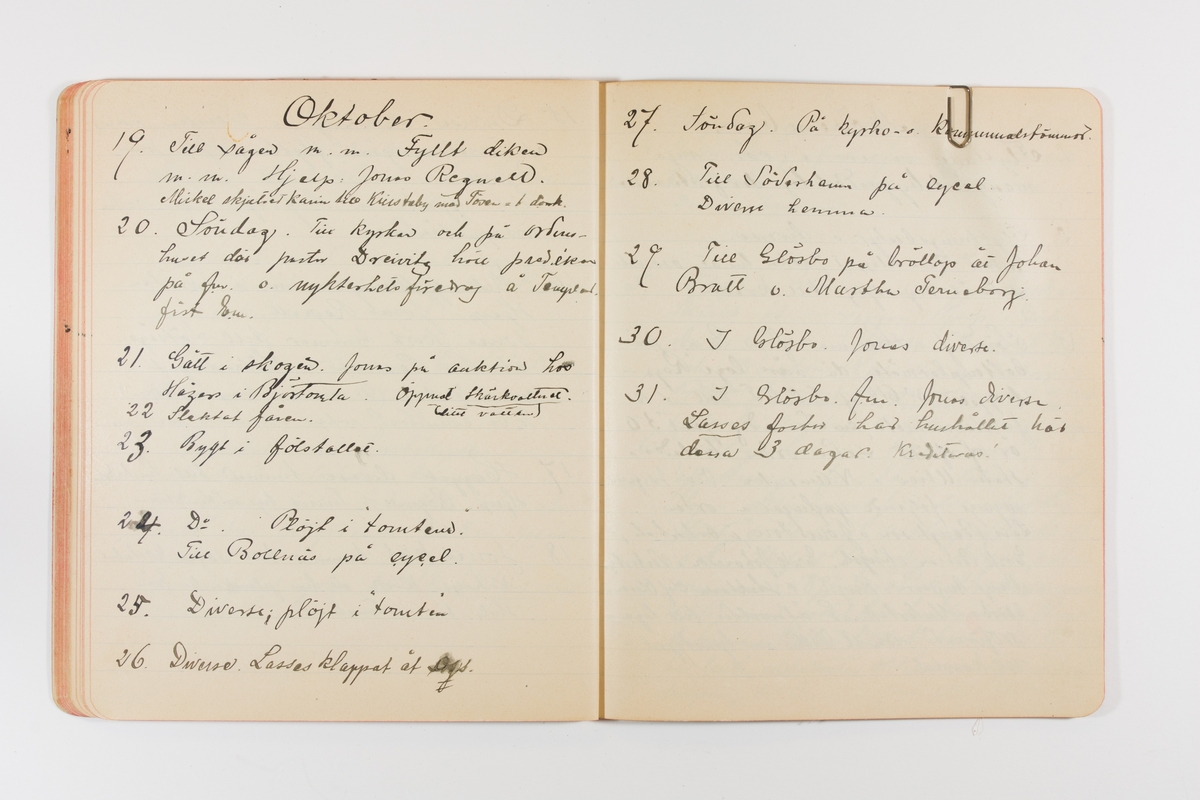 Oktober.
19. Till sågen m. m. Fyllt diken
m. m. Hjelp: Jonas Regnell.
Mickel skjutsat Karin till
20. Söndag. Till kyrkan och på ordens-
huset där pastor Dreivitz höll predikan
på fm. o. nykterhetsföredrag å
Em.
21. Gått i skogen. Jonas på auktion hos
Häger i Björtomta. Öppnat Skärkvarnet.
(litet vatten)
22 Slaktat fåren.
23. Bygt i fölstallet.
24. Do. Plöjt i "tomten".
Till Bollnäs på cycel.
25. Diverse; plöjt i "tomten
26. Diverse. Lasses klappat åt oss.
27. Söndag. På kyrko- o. kommunalstämmor.
28. Till Söderhamn på cycel.
Diverse hemma.
29. Till Glösbo på bröllop åt Johan
Bratt o. Martha Terneborg.
30. I Glösbo. Jonas diverse.
31. I Glösbo. fm. Jonas diverse
Lasses har hushållet här
dessa 3 dagar. Krediteras!